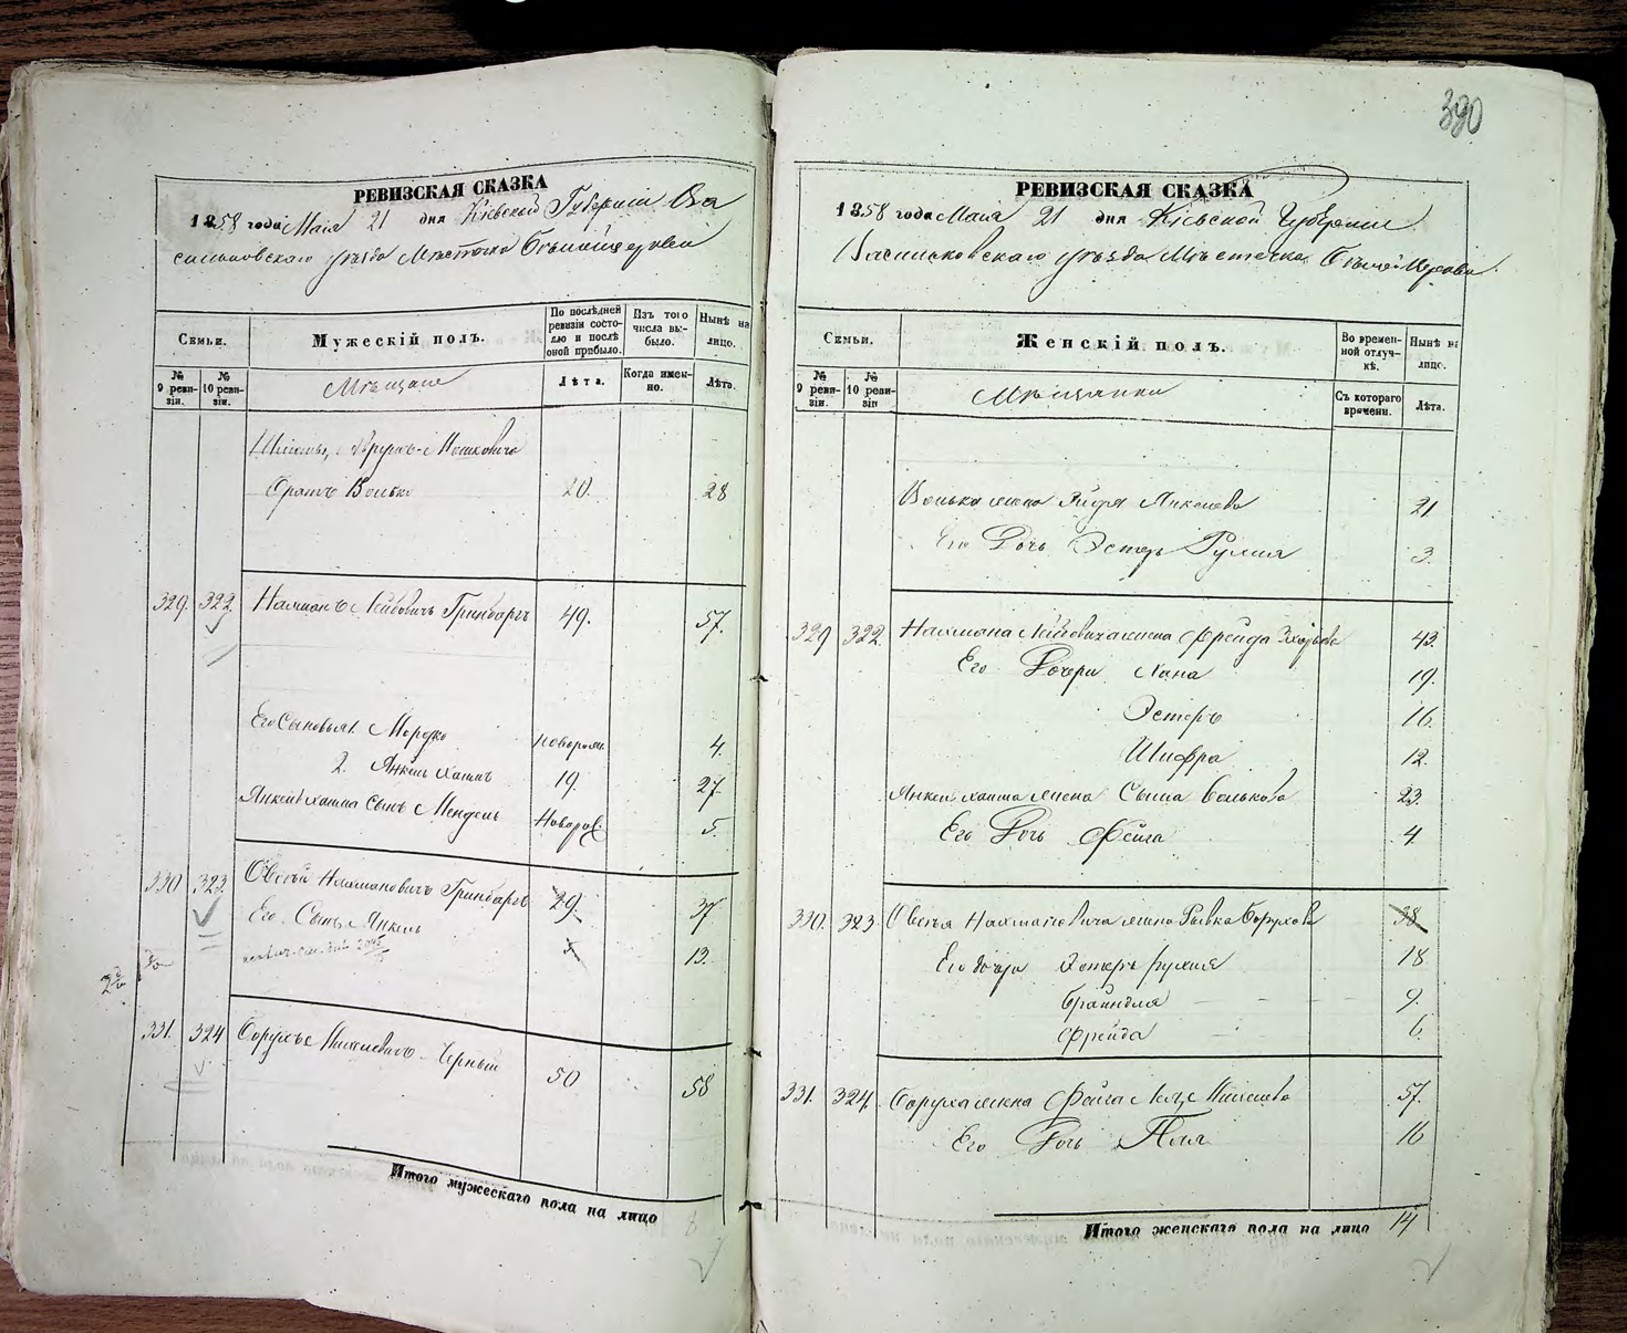 390
РЕВИЗСКАЯ СКАЗКА
1858 года Мая 21 дня Кіевской Губерніи Ва
сильковскаго уезда Местечка Белойцеркви
Семьи.
Мужескій полъ.
По последней ревизіи состояло и после оной прибыло.
Изъ того числа выбыло.
Ныне на лицо.
№ 9 ревизіи.
№ 10 ревизіи.
Мещане
Лѣта.
Когда именно.
Лѣта.
Мошковича
братъ Волько 20. 28
329. 322. Нахманъ Лейбовичъ Гринбаргъ 49. 57.
Его Сыновья 1. Мордко новорож. 4.
2. Янкель Хаимъ 19. 27.
Янкель Хаима Сынъ Мендель Новорож. 5.
330 323. Овсей Нахмановичъ Гринбаргъ 29. 37.
Его Сынъ Янкель 13.
331. 324 Борухъ Черный 50 58
Итого мужескаго пола на лицо 8
РЕВИЗСКАЯ СКАЗКА
1858 года Мая 21 дня Кіевской Губерніи
Васильковскаго уезда Местечка Белой Церкви
Семьи.
Женскій полъ.
Во временной отлучкѣ.
Нынѣ на лицо.
№ 9 ревизіи.
№ 10 ревизіи
Мещанки
Съ котораго времени.
Лѣта.
Волька жена Янкелева 21
Его Дочь Эстеръ Рухля 3.
329 322. Нахмана Лейбовича жена Фрейда 43.
Его Дочери Хана 19.
Эстеръ 16.
Шифра 12.
Янкель Хаима жена Сыма Волькова 23.
Его Дочь Фейга 4
330. 323. Овсея Нахмановича жена Рывка Борухова 38
Его дочери Эстеръ Рухля 18
Брайндля 9.
Фрейда 6.
331. 324. Боруха жена Фейга 57.
Его Дочь 16
Итого женскаго пола на лицо 14